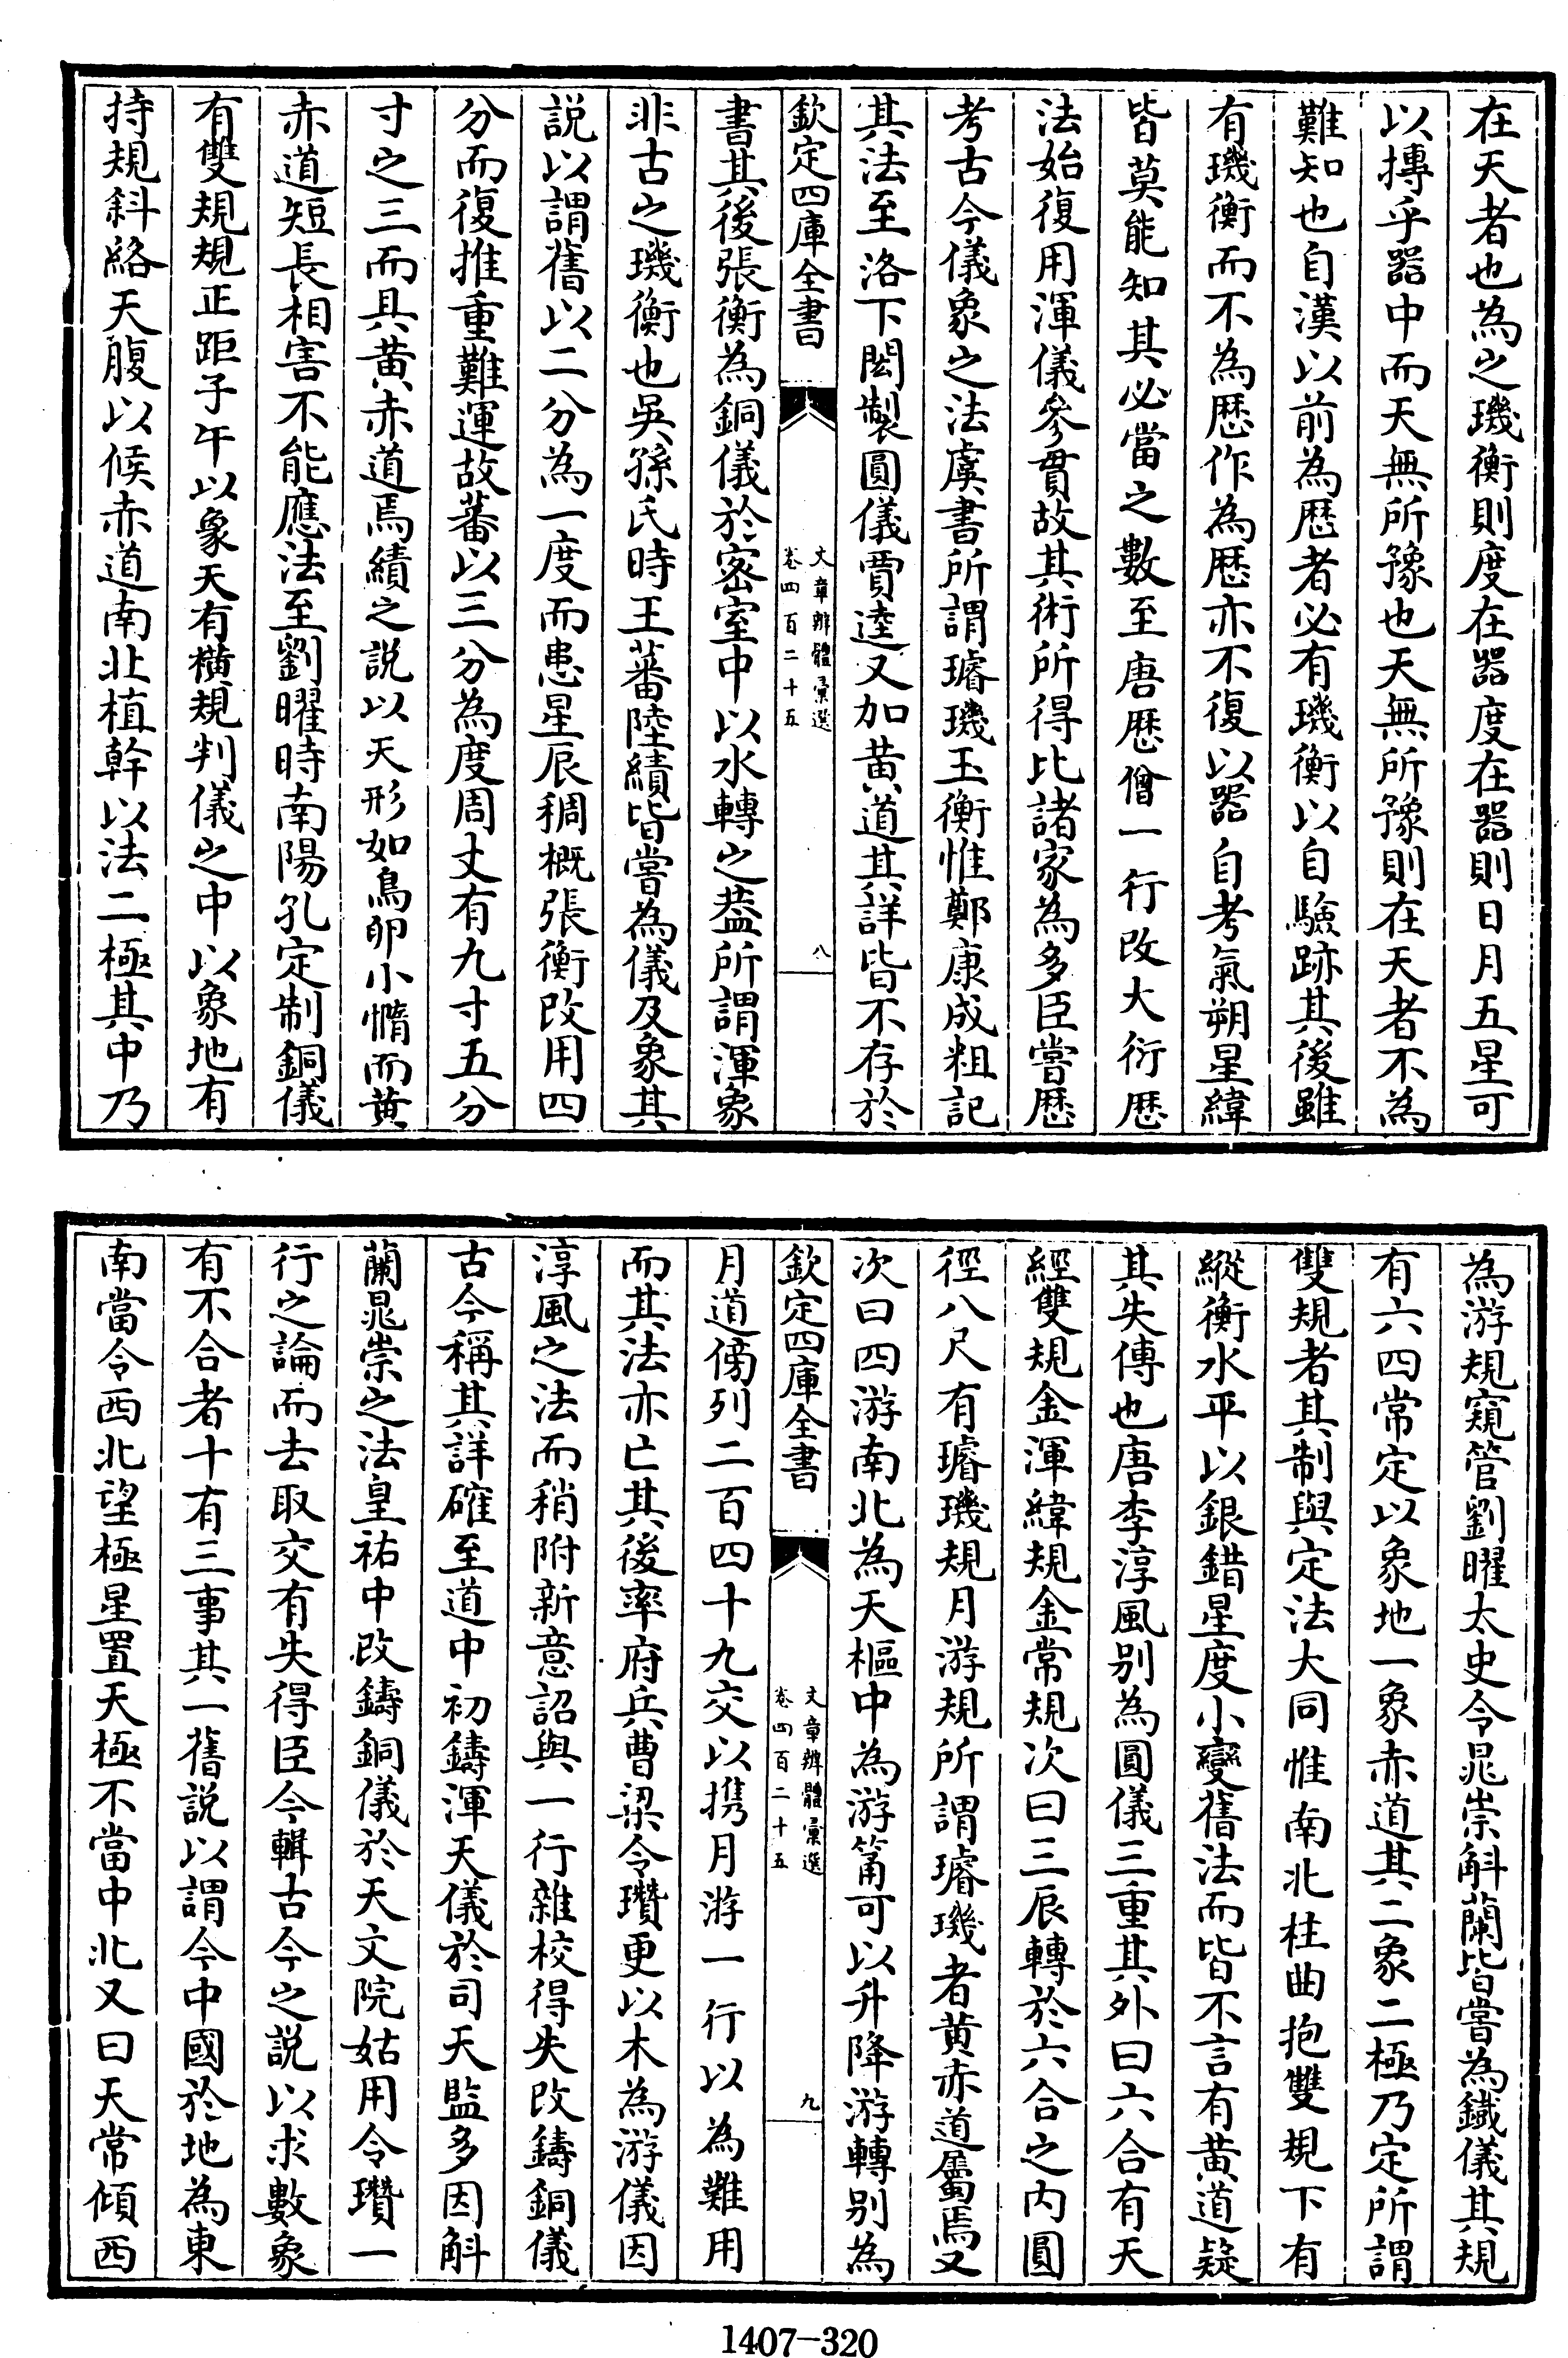 在天者也為之璣衡則度在器度在器則日月五星可
以摶乎器中而天無所豫也天無所豫則在天者不為
難知也自漢以前為厯者必有璣衡以自驗跡其後雖
有璣衡而不為厯作為厯亦不復以器自考氣朔星緯
皆莫能知其必當之數至唐厯僧一行改大衍厯
法始復用渾儀參貫故其術所得比諸家為多臣嘗厯
考古今儀象之法虞書所謂璿璣玉衡惟鄭康成粗記
其法至洛下閎製圓儀賈逵又加黄道其詳皆不存於
欽定四庫全書
文章辨體彚選
卷四百二十五
八
書其後張衡為銅儀於密室中以水轉之葢所謂渾象
非古之璣衡也吳孫氏時王蕃陸績皆嘗為儀及象其
説以謂舊以二分為一度而患星辰稠概張衡改用四
分而復推重難運故蕃以三分為度周丈有九寸五分
寸之三而具黄赤道焉績之説以天形如鳥卵小惰而黄
赤道短長相害不能應法至劉曜時南陽孔定制銅儀
有雙規規正距子午以象天有横規判儀之中以象地有
持規斜絡天腹以候赤道南北植幹以法二極其中乃
為游規窺管劉曜太史令晁崇斛蘭皆嘗為鐵儀其規
有六四常定以象地一象赤道其二象二極乃定所謂
雙規者其制與定法大同惟南北柱曲抱雙規下有
縱衡水平以銀錯星度小變舊法而皆不言有黄道疑
其失傳也唐李淳風别為圓儀三重其外曰六合有天
經雙規金渾緯規金常規次曰三辰轉於六合之内圓
徑八尺有璿璣規月游規所謂璿璣者黄赤道屬焉又
次曰四游南北為天樞中為游筩可以升降游轉别為
欽定四庫全書
文章辨體彚選
卷四百二十五
九
月道傍列二百四十九交以携月游一行以為難用
而其法亦亡其後率府兵曹梁令瓚更以木為游儀因
淳風之法而稍附新意詔與一行雜校得失改鑄銅儀
古今稱其詳確至道中初鑄渾天儀於司天監多因斛
蘭晁崇之法皇祐中改鑄銅儀於天文院姑用令瓚一
行之論而去取交有失得臣今輯古今之説以求數象
有不合者十有三事其一舊説以謂今中國於地為東
南當令西北望極星置天極不當中北又曰天常傾西
1407-320